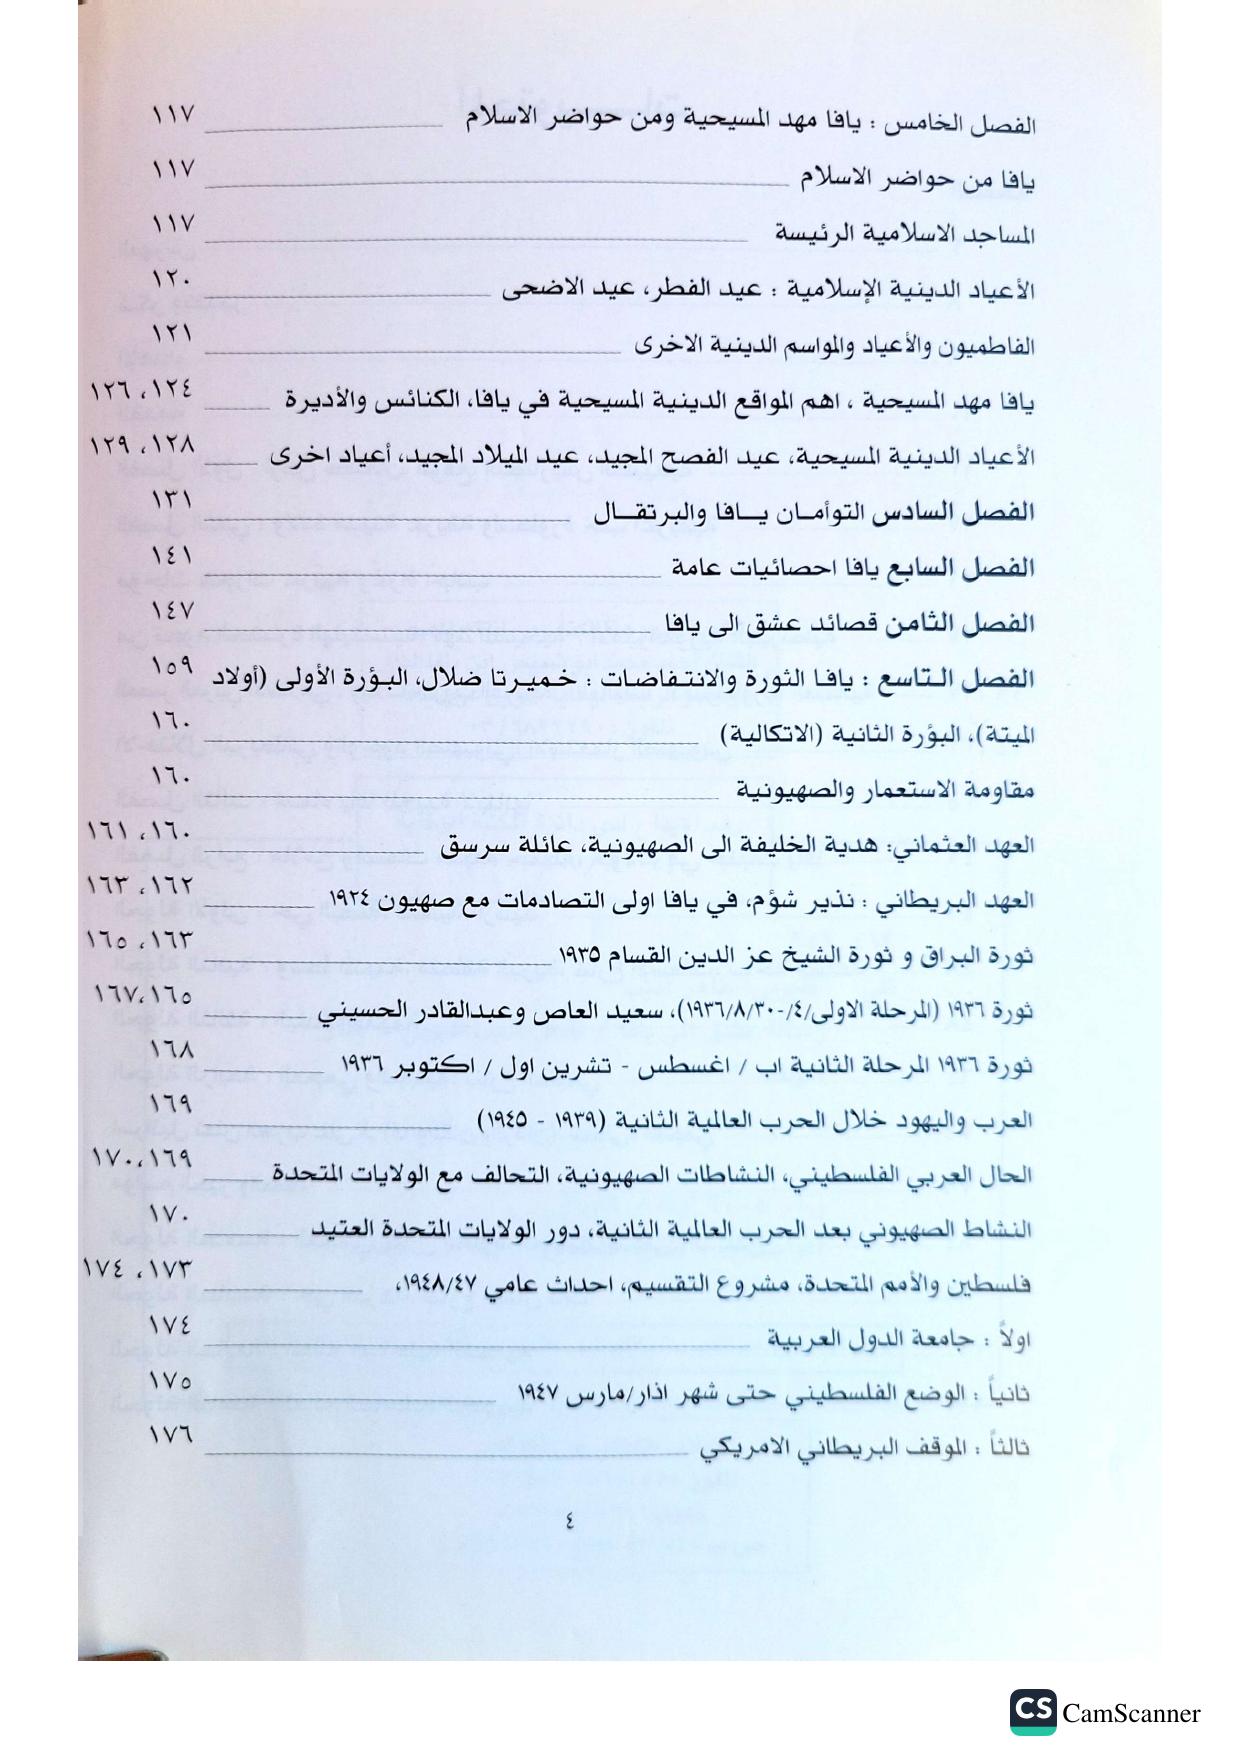 الفصل الخامس : يافا مهد المسيحية ومن حواضر الاسلام ١١٧
يافا من حواضر الاسلام ١١٧
المساجد الاسلامية الرئيسة ١١٧
الأعياد الدينية الإسلامية : عيد الفطر، عيد الاضحى ١٢٠
الفاطميون والأعياد والمواسم الدينية الاخرى ١٢١
يافا مهد المسيحية ، اهم المواقع الدينية المسيحية في يافا، الكنائس والأديرة ١٢٤، ١٢٦
الأعياد الدينية المسيحية، عيد الفصح المجيد، عيد الميلاد المجيد، أعياد اخرى ١٢٨، ١٢٩
الفصل السادس التوأمـان يـافا والبرتقـال ١٣١
الفصل السابع يافا احصائيات عامة ١٤١
الفصل الثامن قصائد عشق الى يافا ١٤٧
الفصل التاسع : يافا الثورة والانتفاضات : خميرتا ضلال، البؤرة الأولى (أولاد ١٥٩
الميتة)، البؤرة الثانية (الاتكالية) ١٦٠
مقاومة الاستعمار والصهيونية ١٦٠
العهد العثماني: هدية الخليفة الى الصهيونية، عائلة سرسق ١٦٠، ١٦١
العهد البريطاني : نذير شؤم، في يافا اولى التصادمات مع صهيون ١٩٢٤ ١٦٢، ١٦٣
ثورة البراق و ثورة الشيخ عز الدين القسام ١٩٣٥ ١٦٣، ١٦٥
ثورة ١٩٣٦ (المرحلة الاولى/٤/-١٩٣٦/٨/٣٠)، سعيد العاص وعبدالقادر الحسيني ١٦٥،١٦٧
ثورة ١٩٣٦ المرحلة الثانية اب / اغسطس - تشرين اول / اكتوبر ١٩٣٦ ١٦٨
العرب واليهود خلال الحرب العالمية الثانية (١٩٣٩ - ١٩٤٥) ١٦٩
الحال العربي الفلسطيني، النشاطات الصهيونية، التحالف مع الولايات المتحدة ١٦٩،١٧٠
النشاط الصهيوني بعد الحرب العالمية الثانية، دور الولايات المتحدة العتيد ١٧٠
فلسطين والأمم المتحدة، مشروع التقسيم، احداث عامي ١٩٤٨/٤٧، ١٧٣، ١٧٤
اولاً : جامعة الدول العربية ١٧٤
ثانياً : الوضع الفلسطيني حتى شهر اذار/مارس ١٩٤٧ ١٧٥
ثالثاً : الموقف البريطاني الامريكي ١٧٦
٤
CS CamScanner